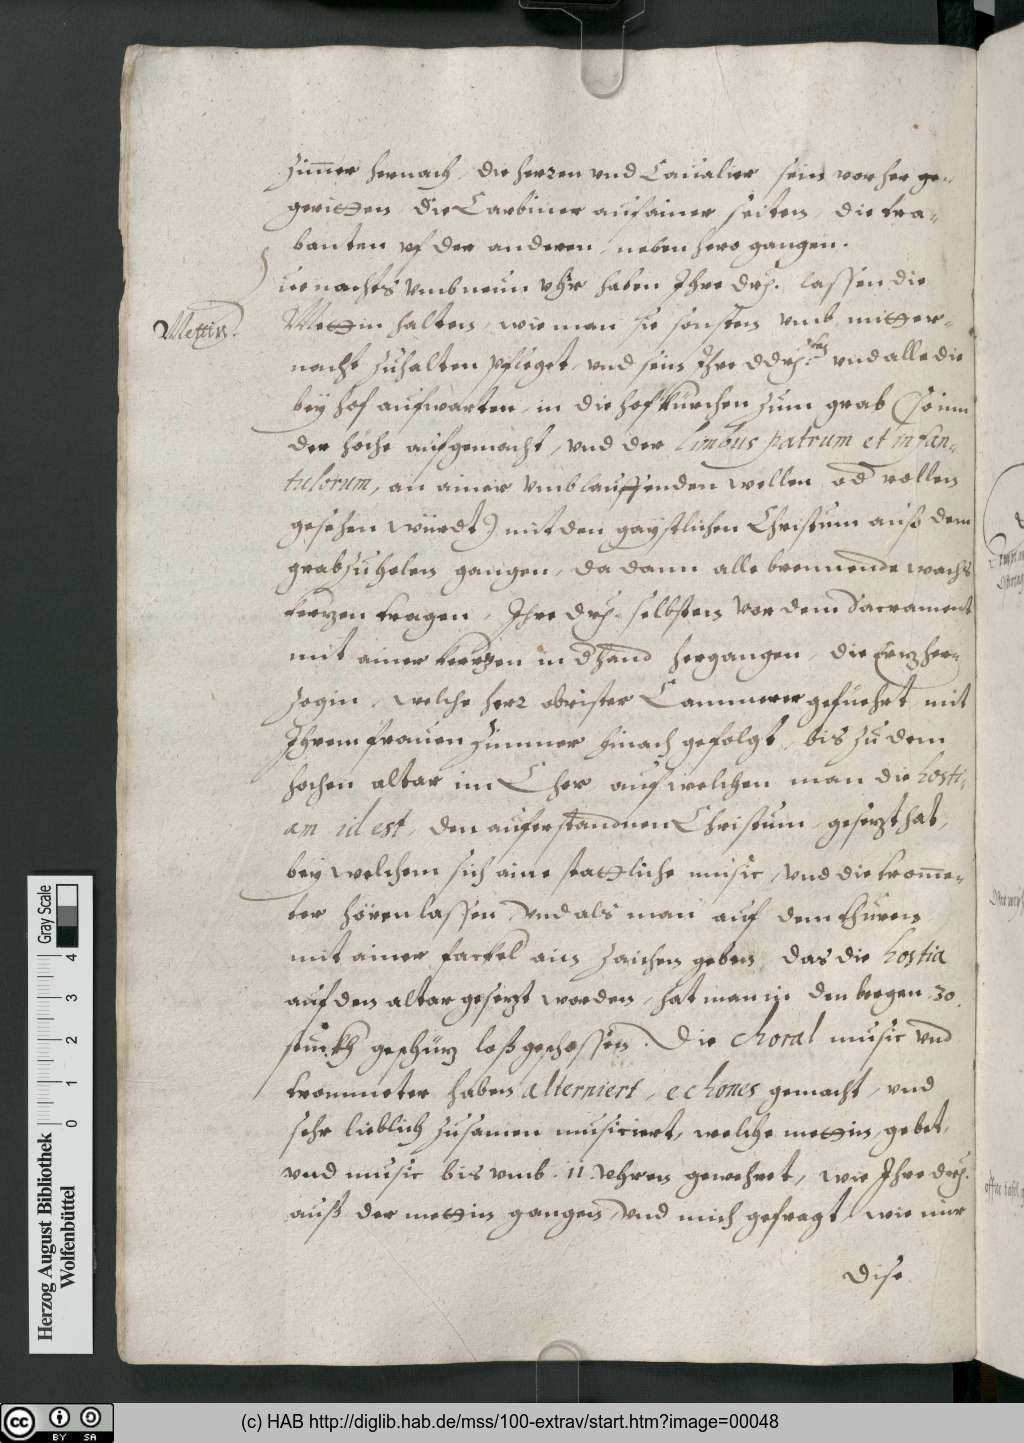 zimmer hernach, die herren vnd Caualier sein vorher ge-
geritten, die Carbiner auf ainer seiten, die tra-
banten vf der anderen, neben hero gangen.
nachts vmb neun vhr haben Ihre drh. lassen die
Mettin.
Mettin halten, wie man sie sonsten vmb mitter-
nacht zuhalten pfleget, vnd sein Ihre ddrh. vnd alle die
bey hof aufwarten, in die hofkürchen zum grab (so inn
der höche aufgemacht, vnd der limbus patrum et infan-
tulorum, an ainer vmblauffenden wellen od rollen
gesehen würdt) mit den gaystlichen Christum auß dem
grab zu holen gangen, da dann alle brennende wachs
kerzen tragen, Ihre drh. selbsten vor dem Sacrament
mit ainer kerzen in d hand hergangen, die Erzher-
zogin, welche herr obrister Cammerer gefuehrt, mit
Ihrem frauen zimmer hinach gefolgt, bis zu dem
hochen altar im Chor auf welchen man die hosti-
am id est, den auferstandnen Christum, gesezt hat,
bey welchem sich aine stattliche music, vnd die trome-
ter hören lassen, vnd als man auf dem thuren
mit ainer fackel ain zaichen geben, das die hostia
auf den altar gesezt worden, hat man in den 30.
stuckh geschüz loßgeschossen. Die choral music vnd
trommeter haben alterniert, echones gemacht, vnd
sehr lieblich zusamen musiciert, welche mettin, gebet,
vnd music bis vmb 11 vhren gewehret, wie Ihre drh.
auß der mettin gangen, vnd mich gefragt, wie mir
dise
Herzog August Bibliothek
Wolfenbüttel
0 1 2 3 4
Gray Scale
cc BY SA
(c) HAB http://diglib.hab.de/mss/100-extrav/start.htm?image=00048